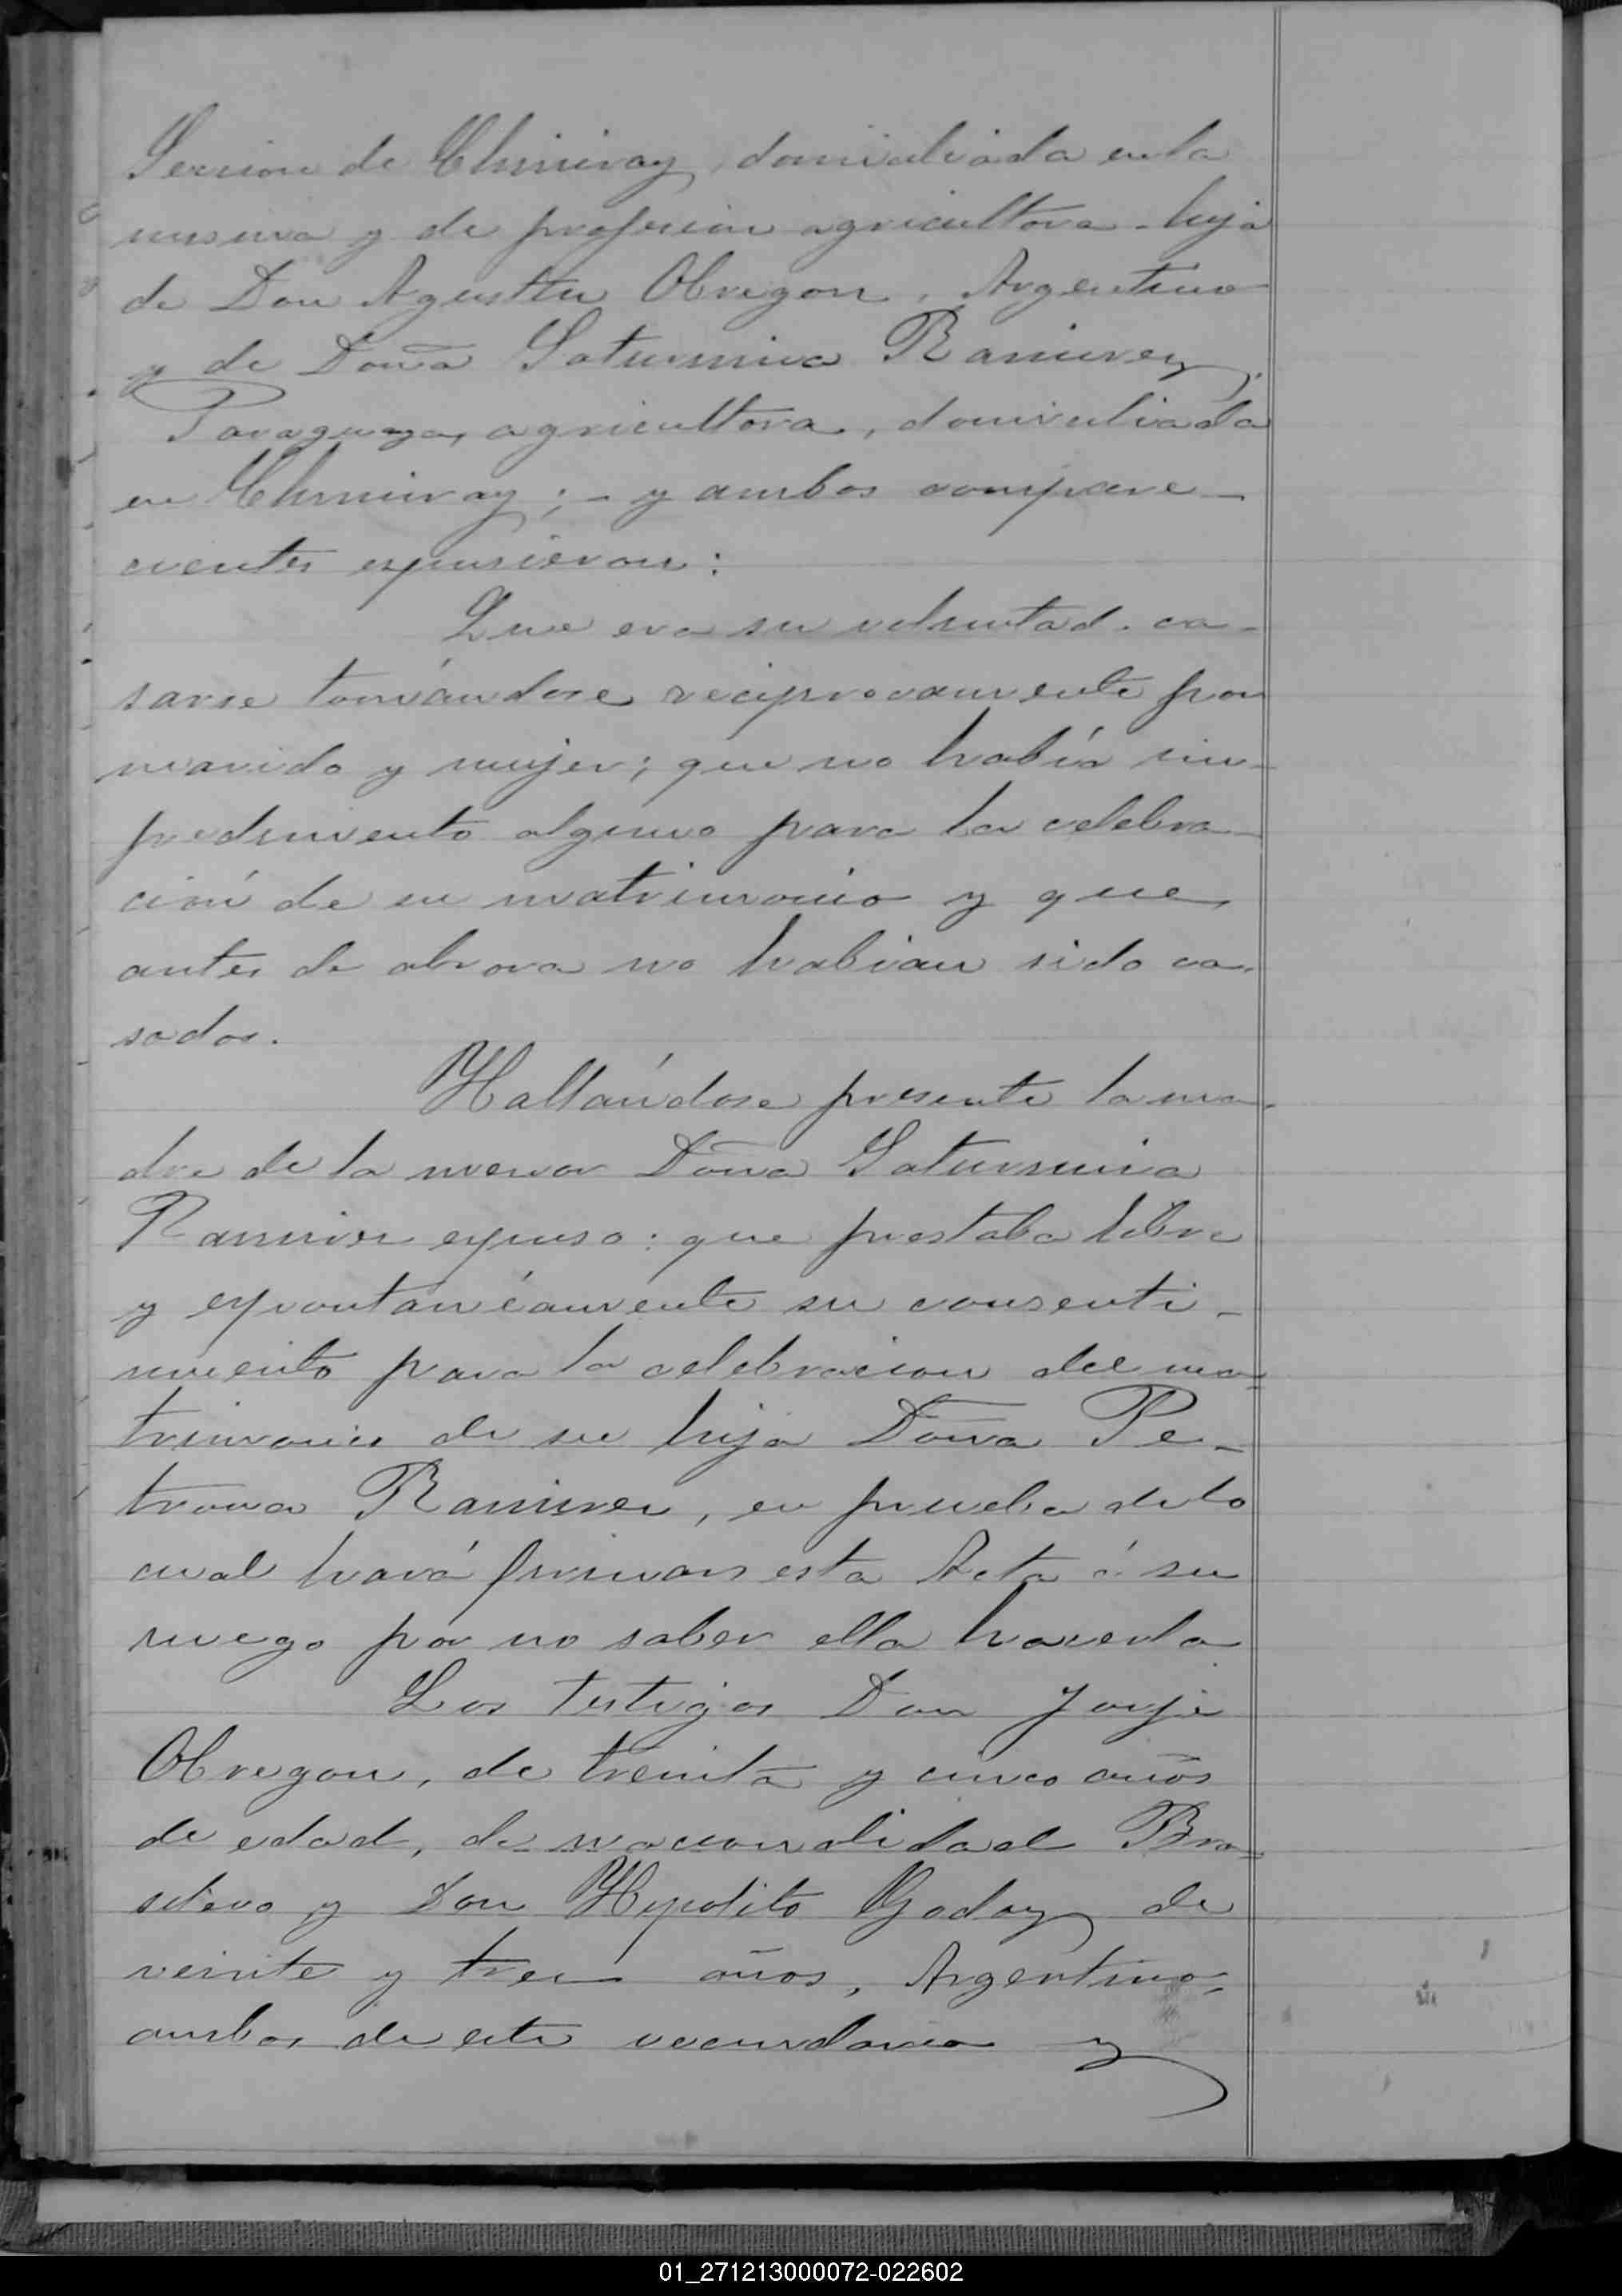 Seccion de Chimiray, domiciliada en la
misma y de profesion agricultora - hija
de Don Agustin Obregon, Argentino
y de Doña Saturnina Ramirez,
Paraguaya, agricultora, domiciliada
en Chimiray; - y ambos compare-
cientes expusieron:
Que era su voluntad ca-
sarse tomándose reciprocamente por
marido y mujer; que no había im-
pedimento alguno para la celebra-
ción de su matrimonio y que
antes de ahora no habian sido ca-
sados.
Hallándose presente la ma-
dre de la menor Doña Saturnina
Ramirez expuso: que prestaba libre
y espontanéamente su consenti-
miento para la celebracion del ma-
trimonio de su hija Doña Pe-
trona Ramirez, en prueba de lo
cual hará firmar esta Acta á su
ruego por no saber ella hacerlo
Los testigos Don Jorje
Obregon, de treinta y cinco años
de edad, de nacionalidad Bra-
silero y Don Hypolito Godoy de
veinte y tres años, Argentino,
ambos de este vecindario y
01_271213000072-022602